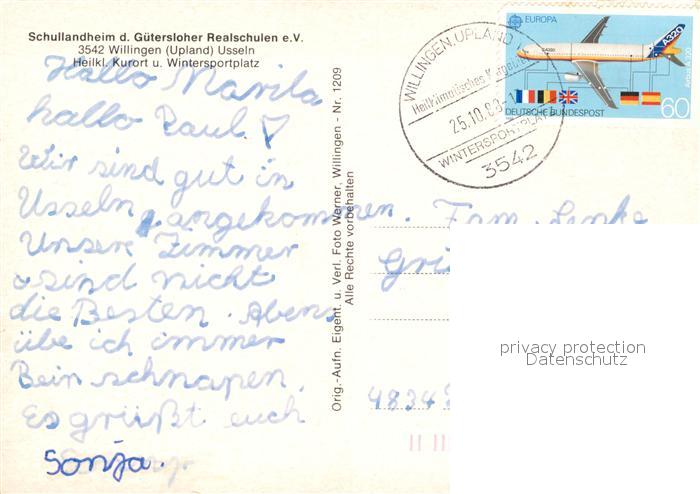 Schullandheim d. Gütersloher Realschulen e.V.
3542 Willingen (Upland) Usseln
Heilkl. Kurort u. Wintersportplatz
Hallo Marila
hallo Paul.
Wir sind gut in
Usseln angekommen.
Unsere Zimmer
sind nicht
die Besten. Abens
übe ich immer
Bein schnapen.
Es grüßt euch
Sonja.
Orig.-Aufn. Eigent. u. Verl. Foto Werner, Willingen - Nr. 1209
Alle Rechte vorbehalten
WILLINGEN, UPLAND
Heilklimatisches
25.10.8
WINTERSPORTPLATZ
3542
EUROPA
A320
Airbus A320
DEUTSCHE BUNDESPOST
60
Fam. Linke
Grü
4834
privacy protection
Datenschutz